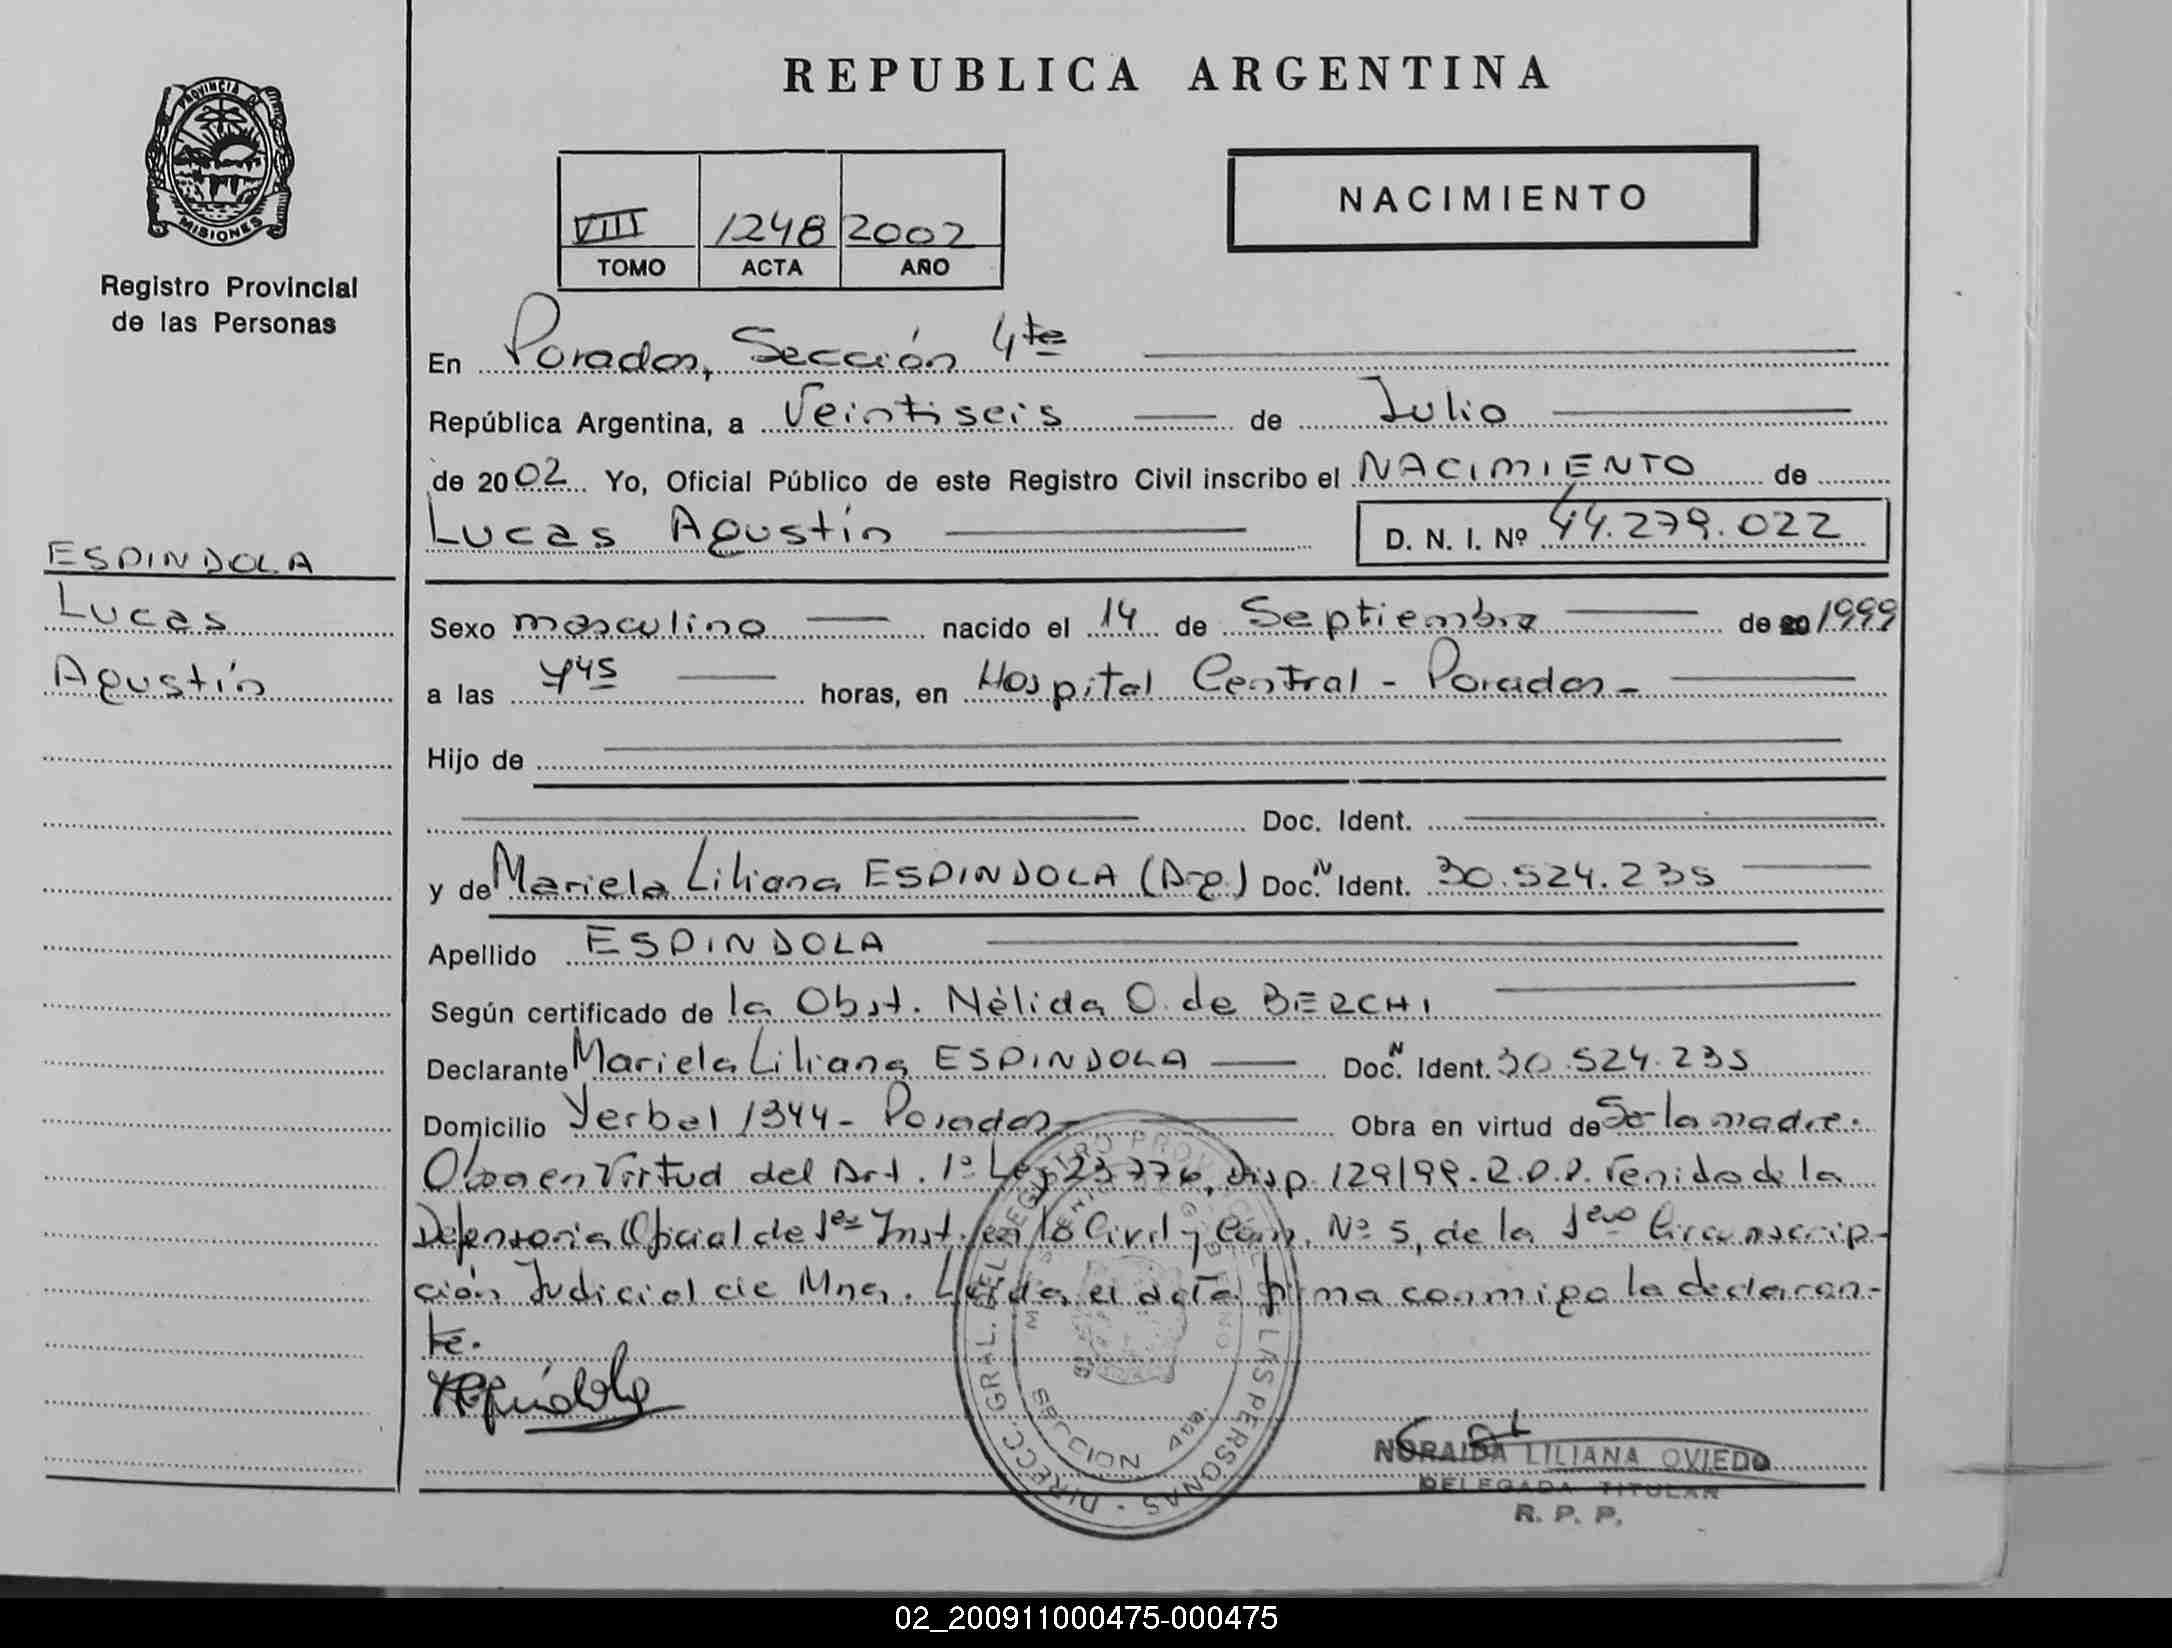 REPUBLICA ARGENTINA
PROVINCIA DE
MISIONES
Registro Provincial
de las Personas
VIII 1248 2002
TOMO ACTA AÑO
NACIMIENTO
En Posadas, Sección 4ta
República Argentina, a Veintiseis de Julio
de 2002 Yo, Oficial Público de este Registro Civil inscribo el NACIMIENTO de
Lucas Agustín
D. N. I. Nº 44.279.022
ESPINDOLA
Lucas
Agustín
Sexo masculino nacido el 14 de Septiembre de 20 1999
a las 4 45 horas, en Hospital Central - Posadas -
Hijo de
Doc. Ident.
y de Mariela Liliana ESPINDOLA (Arg) Doc. N Ident. 30.524.235
Apellido ESPINDOLA
Según certificado de la Obst. Nélida O. de BERCHI
Declarante Mariela Liliana ESPINDOLA Doc. N Ident. 30.524.235
Domicilio Yerbal 1344 - Posadas - Obra en virtud de Se la madre.
Obra en Virtud del Art. 1º Ley 23776, Disp. 129/99. R.P.P. Venido de la
Defensoria Oficial de 1era Inst. en lo Civil y Com. Nº 5, de la 1era Circunscrip-
ción Judicial de Mnes. Leída el acta firma conmigo la declaran-
te.
DIRECC. GRAL. DEL REGISTRO PROVINCIAL DE LAS PERSONAS
NORAIDA LILIANA OVIEDO
DELEGADA TITULAR
R. P. P.
02_200911000475-000475